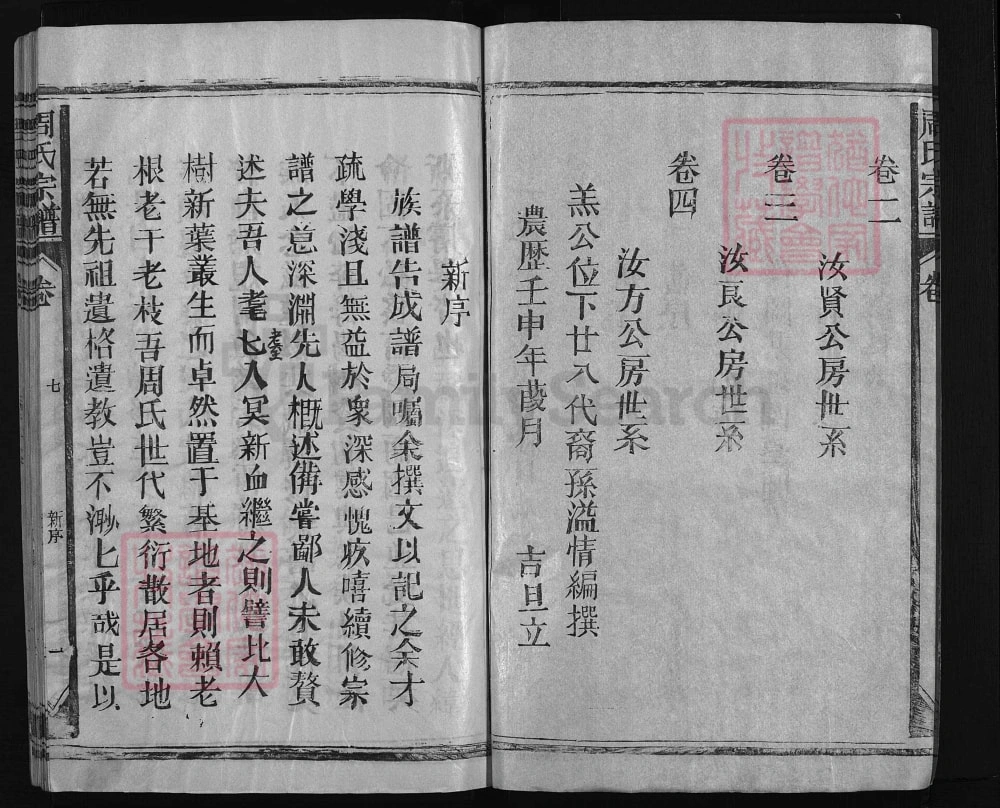 周氏宗譜
卷
卷二
汝賢公房世系
卷三
汝良公房世系
卷四
汝方公房世系
羔公位下廿八代裔孫溢情編撰
農歷壬申年葭月 吉旦立
新序
族譜告成譜局囑余撰文以記之余才
疏學淺且無益於衆深感愧疚嘻續修宗
譜之意深淵先人概述備嘗鄙人未敢贅
述夫吾人耄耋匕入冥新血繼之則譬比大
樹新葉叢生而卓然置于基地者則賴老
根老干老枝吾周氏世代繁衍散居各地
若無先祖遺格遺教豈不渺匕乎哉是以
周氏宗譜
卷
七
新序
一
FamilySearch